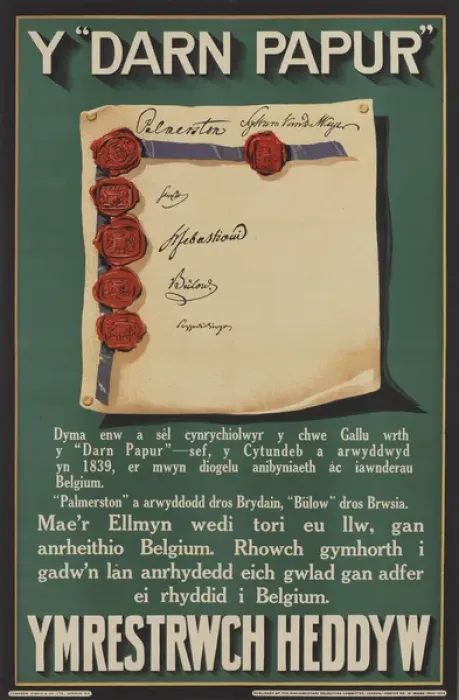 Y "DARN PAPUR"
Palmerston Sylvain Van de Weyer
Senfft
H Sebastiani
Bülow
Dyma enw a sêl cynrychiolwyr y chwe Gallu wrth
y "Darn Papur"—sef, y Cytundeb a arwyddwyd
yn 1839, er mwyn diogelu anibyniaeth ac iawnderau
Belgium.
"Palmerston" a arwyddodd dros Brydain, "Bülow" dros Brwsia.
Mae'r Ellmyn wedi tori eu llw, gan
anrheithio Belgium. Rhowch gymhorth i
gadw'n lân anrhydedd eich gwlad gan adfer
ei rhyddid i Belgium.
YMRESTRWCH HEDDYW